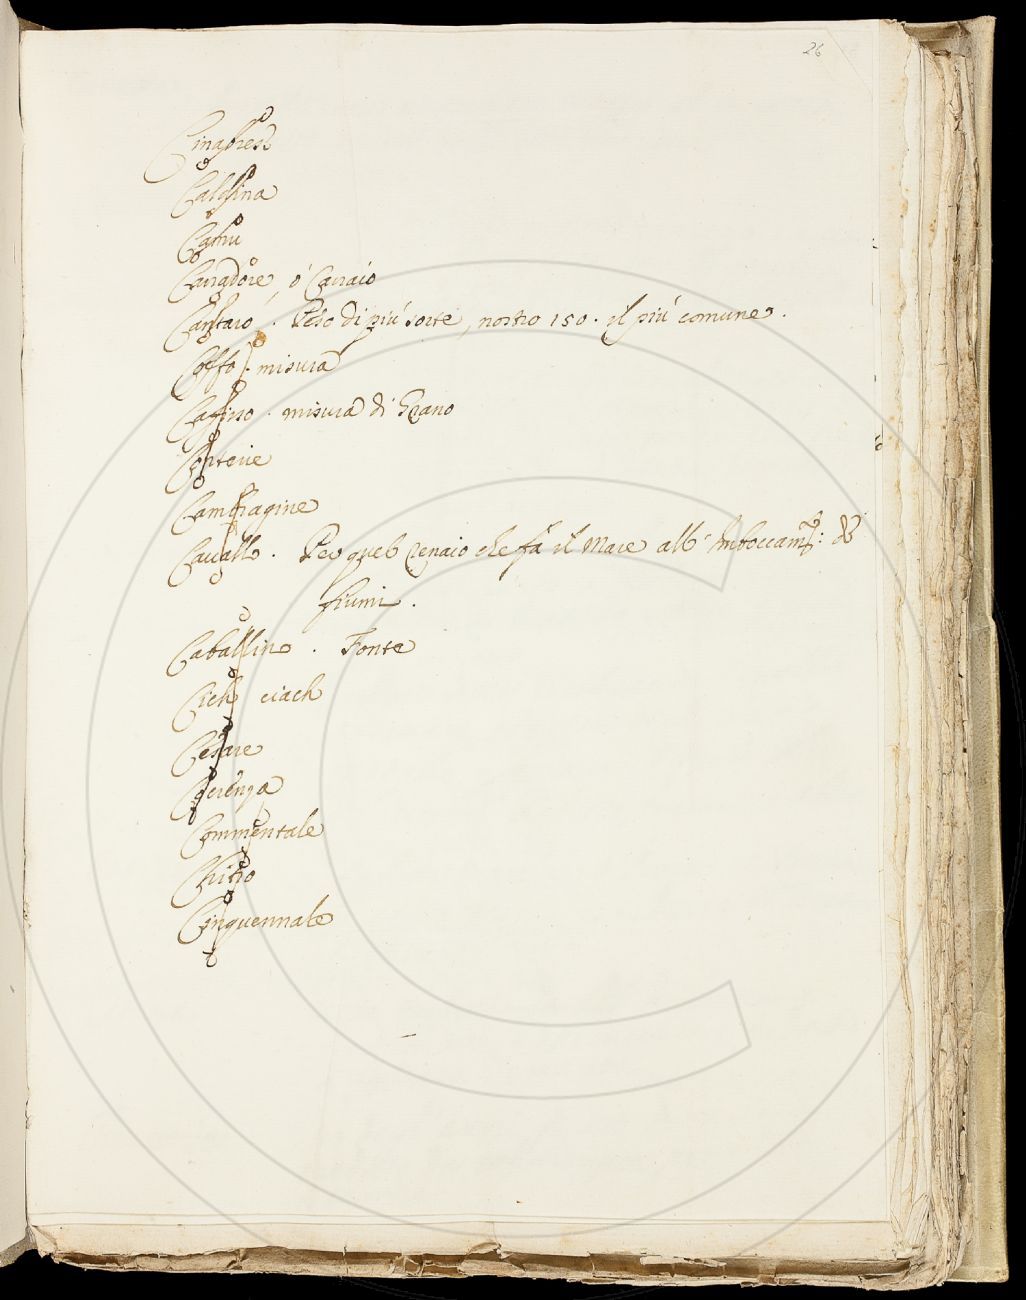 26
Cinabrese
Calcina
Camu
Cavadore, ò Cavaio
Cantaro. Peso di più sorte, nostro 150. il più comune.
Coffa. misura
Cafiso. misura di Grano
Conterie
Cambragine
Cavallo. Per quel Renaio che fà il Mare all' Imboccam.to: de
fiumi.
Caballino. Fonte
Cich ciach
Cesare
Commentale
Cinquennale
C